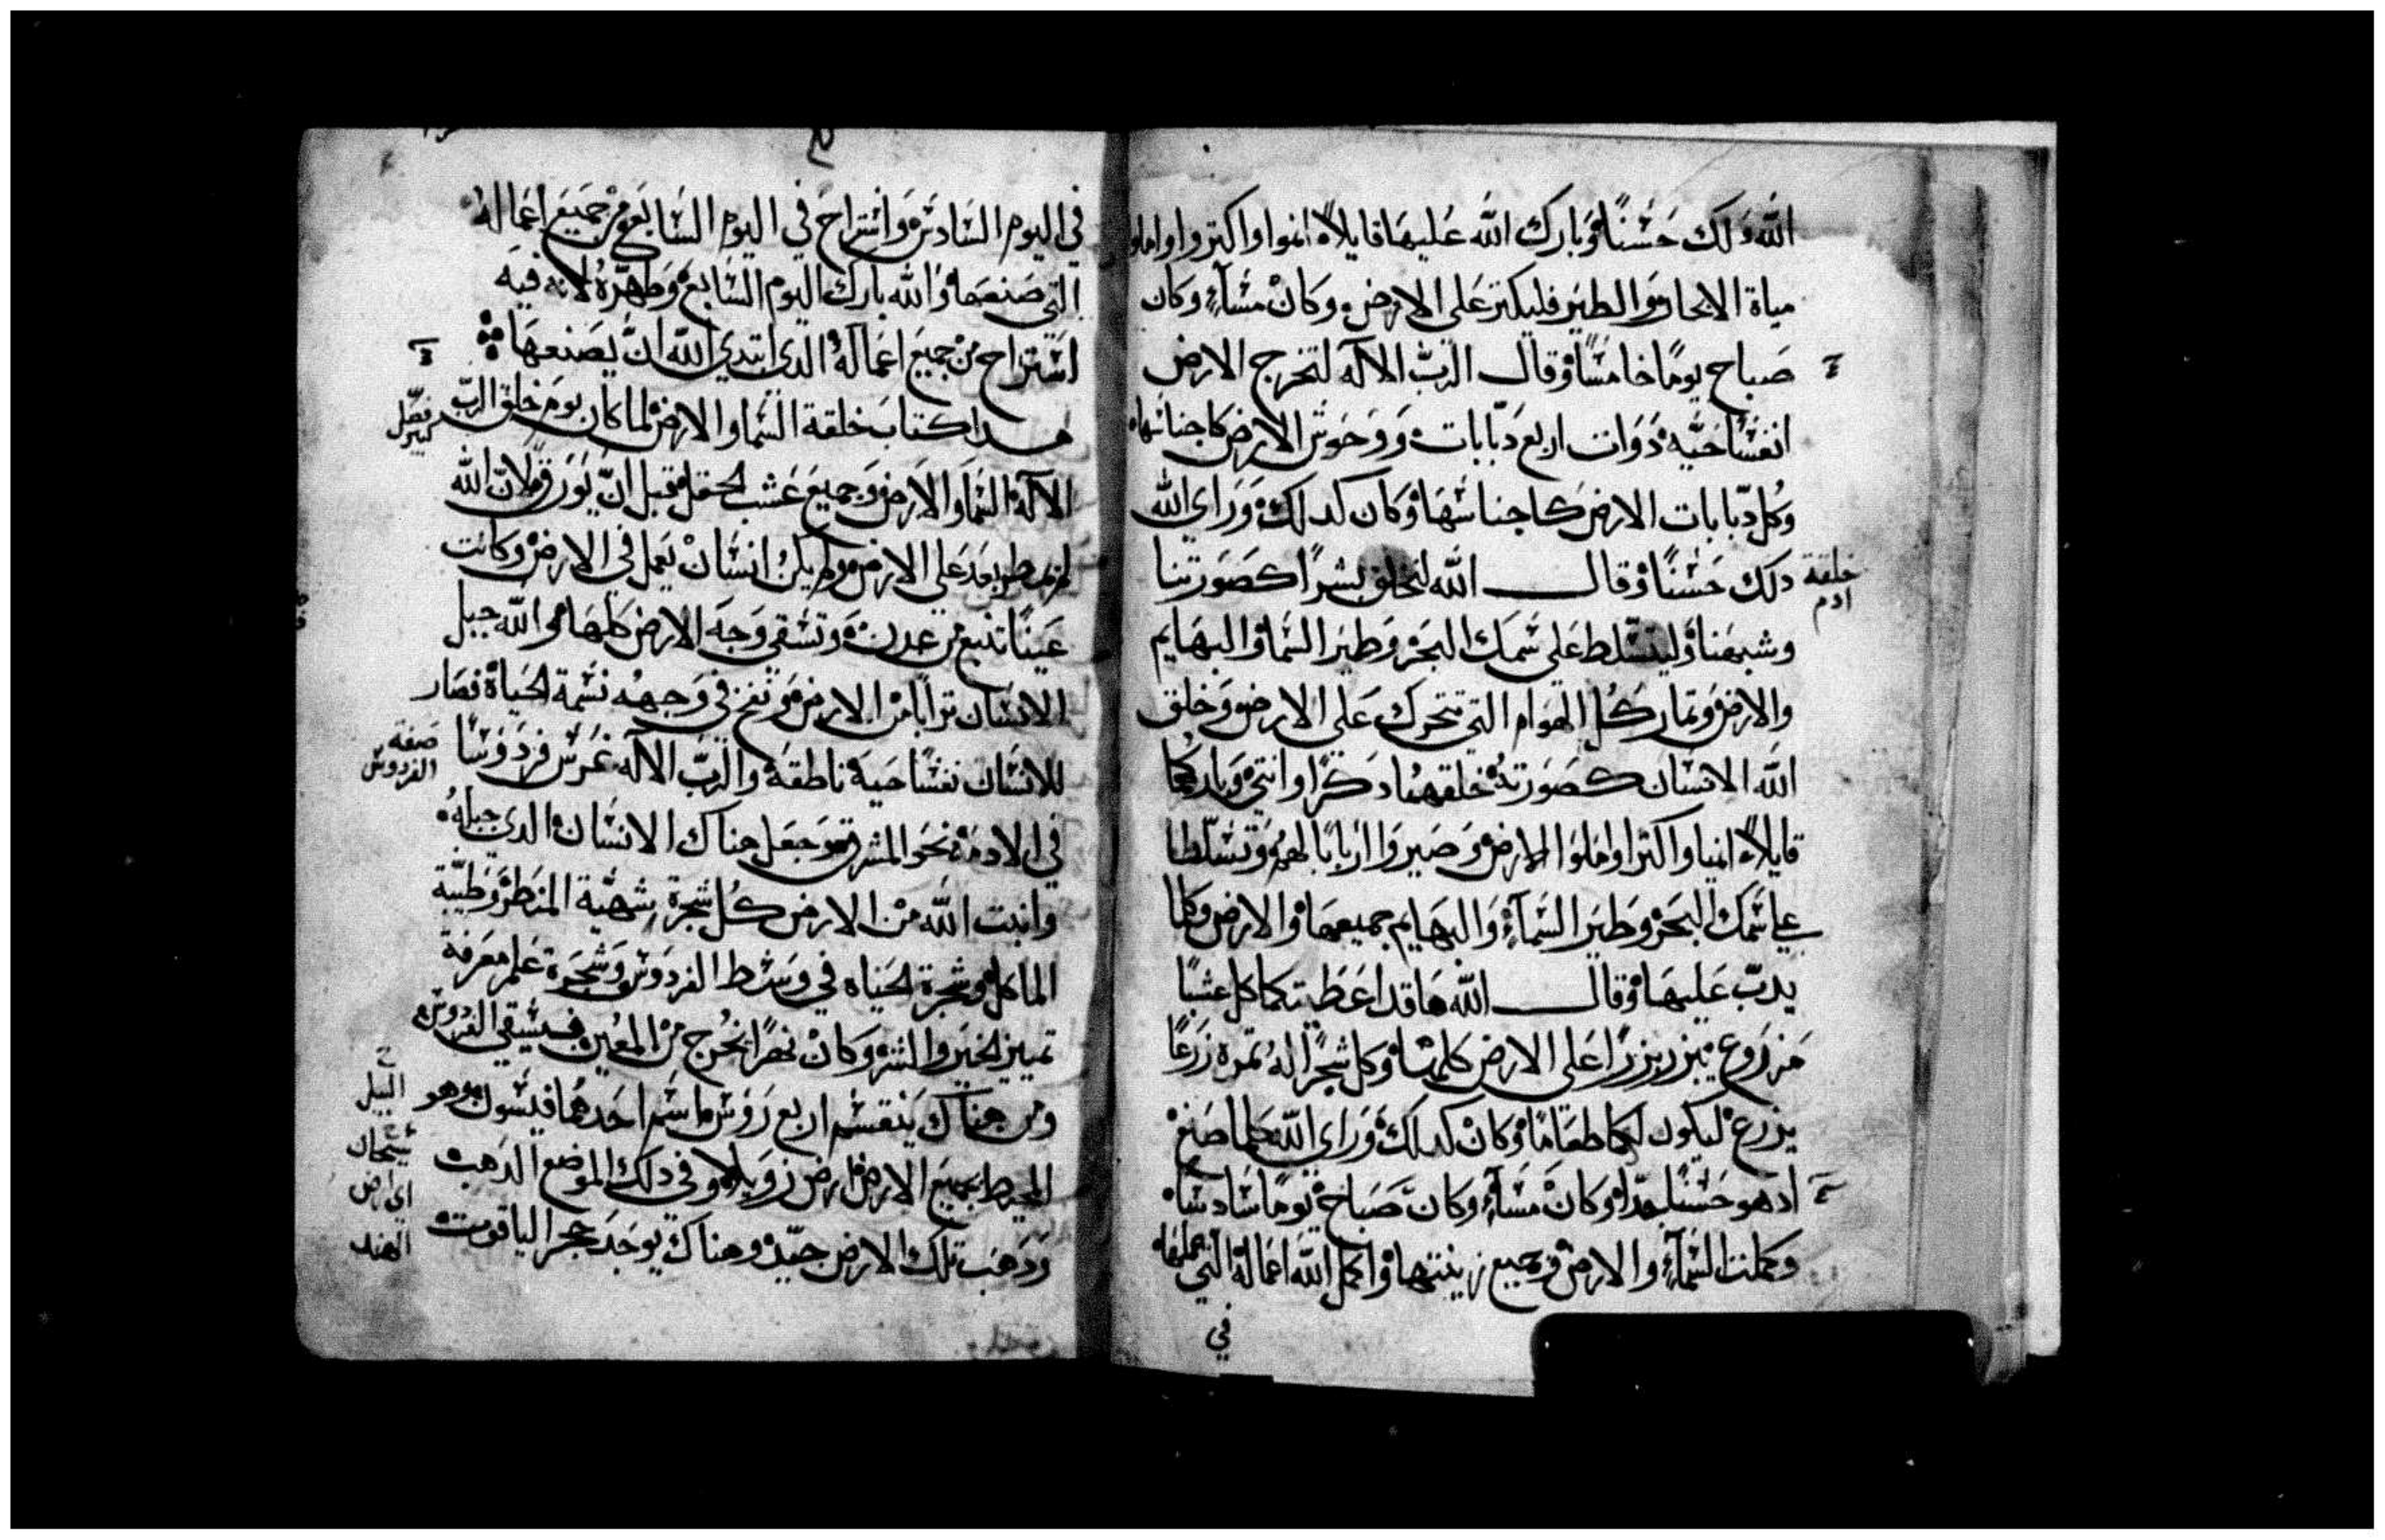 الله دلك حسنًا وبارك الله عليها قايلاً انموا واكثروا واملوا
مياة الابحار والطير فليكثر على الارض وكان مسآء وكان
صباح يومًا خامسًا وقال الرب الاله لتخرج الارض
انفسًا حيّه دوات اربع دبّابات ووحوش الارض كاجناسها
وكل دبّابات الارض كاجناسها وكان كدلك وراي الله
دلك حسنًا وقال الله لنخلق بشرًا كصورتنا
خلقة
ادم
وشبهنا وليتسلّط على سمك البحر وطير السما والبهايم
والارض وتمار كل الهوام التي تتحرك على الارض وخلق
الله الانسان كصورته خلقهما دكرًا وانثي وباركهما
قايلاً انميا واكثرا واملوا الارض وصيروا اربابًا لها وتسلّطا
علي سمك البحر وطير السمآء والبهايم جميعها والارض وكلما
يدبّ عليها وقال الله ها قد اعطيتكما كل عشبًا
مزروع يبزر بزرًا على الارض كلها وكل شجرًا له ثمره زرعًا
يزرع ليكون لكما طعامًا وكان كدلك وراي الله كلما صنع
ادهو حسنًا جدًا وكان مسآء وكان صباح يومًا سادسًا
وكملت السمآء والارض وجميع زينتها واكمل الله اعماله التي عملها
في
في اليوم السادس واستراح في اليوم السابع من جميع اعماله
التي صنعها والله بارك اليوم السابع وطهّره لانه فيه
استراح من جميع اعماله الدي ابتدي الله انّ يصنعها
هدا كتاب خلقة السما والارض لما كان يوم خلق الربّ
فصل
كبير
الاله السما والارض وجميع عشب الحقل قبل انّ يورق لانّ الله
لم يمطر بعد على الارض ولم يكن انسان يعمل في الارض وكانت
عينًا تنبع من عدن وتسقي وجه الارض كلها والله جبل
الانسان ترابًا من الارض ونفخ في وجهه نسمة الحياة فصار
للانسان نفسًا حية ناطقة والربّ الاله غرس فردوسًا
صفة
الفردوس
في الادمة نحو المشرق وجعل هناك الانسان الدي جبله
وانبت الله من الارض كل شجرة شهيّة المنظر وطيّبة
الماكل وشجرة الحياه في وسط الفردوس وشجرة علم معرفة
تمييز الخير والشر وكان نهرًا يخرج من المعين فيسقي الفردوس
ومن هناك ينقسم اربع رووس اسم احدها فيسون وهو
النيل
المحيط بجميع الارض ارض زويلا وفي دلك الموضع الدهب
سيحان
اي ارض
الهند
ودهب تلك الارض جيّد وهناك يوجد حجر الياقوت